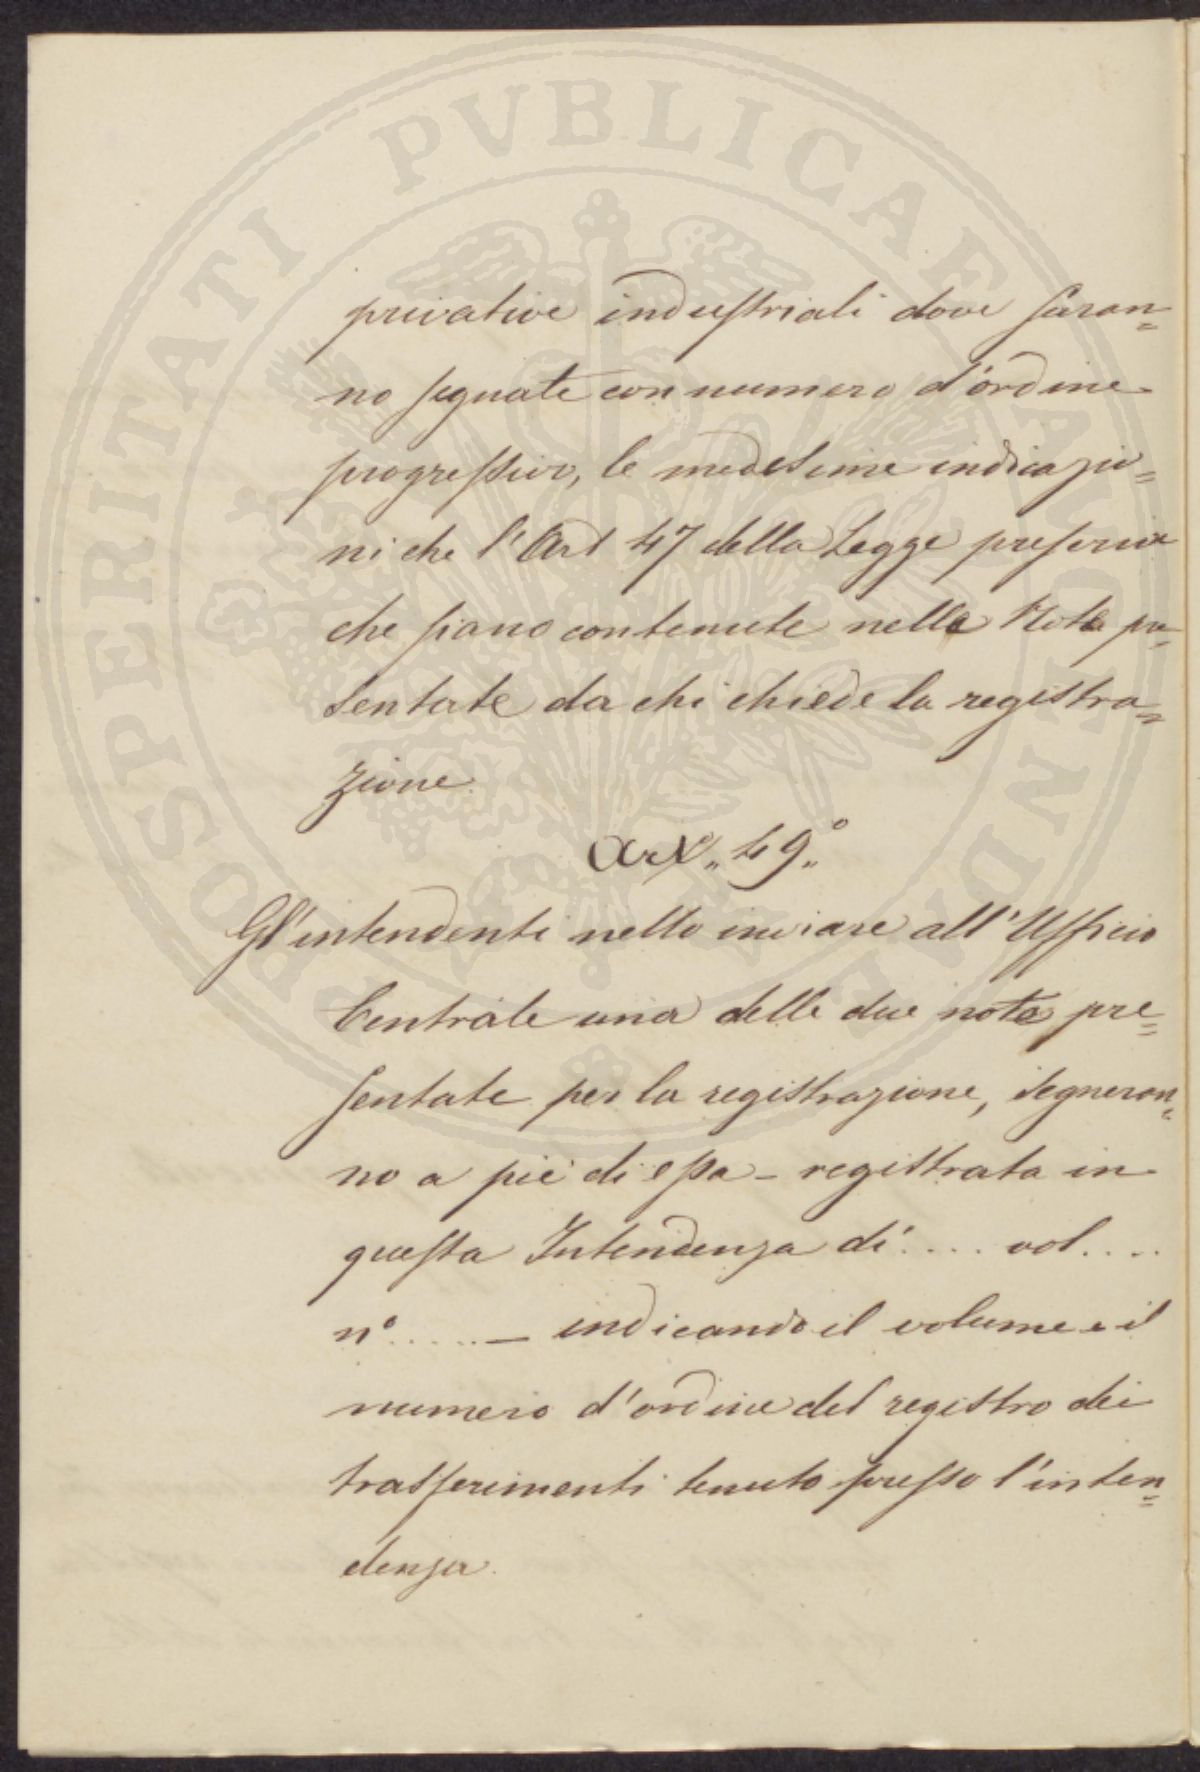 PROSPERITATI PVBLICAE AVGENDAE
privative industriali dove saran=
no segnate con numero d'ordine
progressivo, le medesime indicazio=
ni che l'Art 47 della Legge prescrive
che siano contenute nelle Note pre=
sentate da chi chiede la registra=
zione.
Art. 49.°
Gl'intendenti nello inviare all'Ufficio
Centrale una delle due note pre=
sentate per la registrazione, segneran=
no a piè di essa - registrata in
questa Intendenza di .... vol....
n° ..... - indicando il volume e il
numero d'ordine del registro dei
trasferimenti tenuto presso l'inten=
denza.